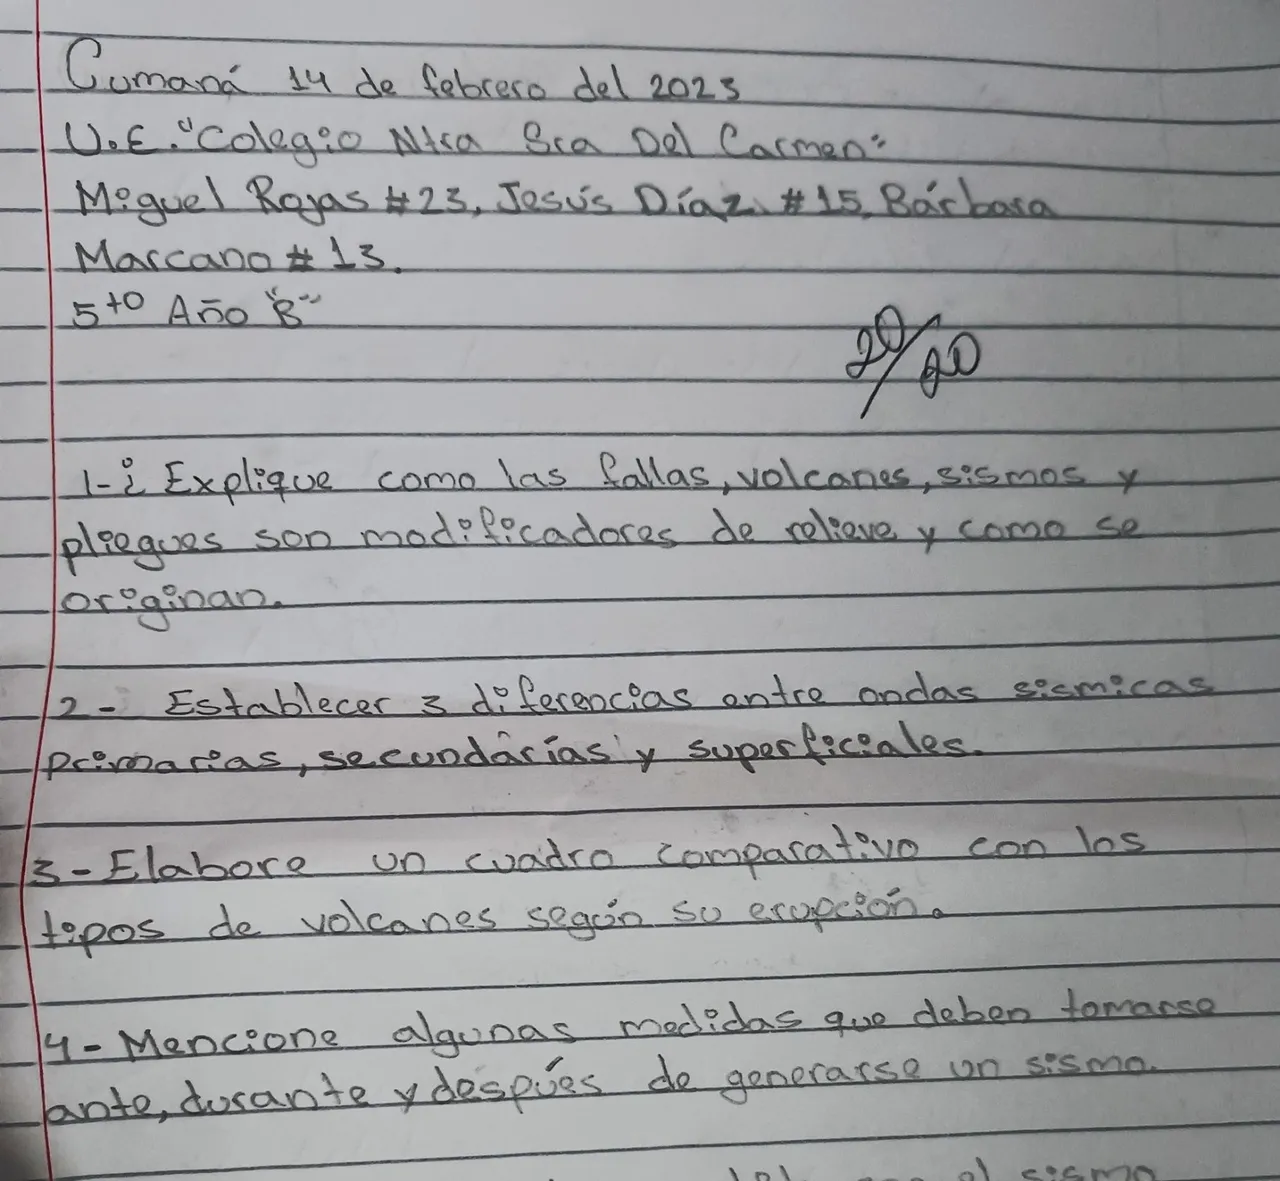 Cumaná 14 de febrero del 2023
U.E. "Colegio Ntra Sra Del Carmen"
Miguel Rojas #23, Jesús Díaz #15, Bárbara
Marcano # 13.
5to Año "B"
20/20
1-¿ Explique como las fallas, volcanes, sismos y
pliegues son modificadores de relieve y como se
originan.
2- Establecer 3 diferencias entre ondas sismicas
primarias, secundárias y superficiales.
3- Elabore un cuadro comparativo con los
tipos de volcanes según su erupción.
4- Mencione algunas medidas que deben tomarse
ante, durante y despúes de generarse un sismo.
el sismo